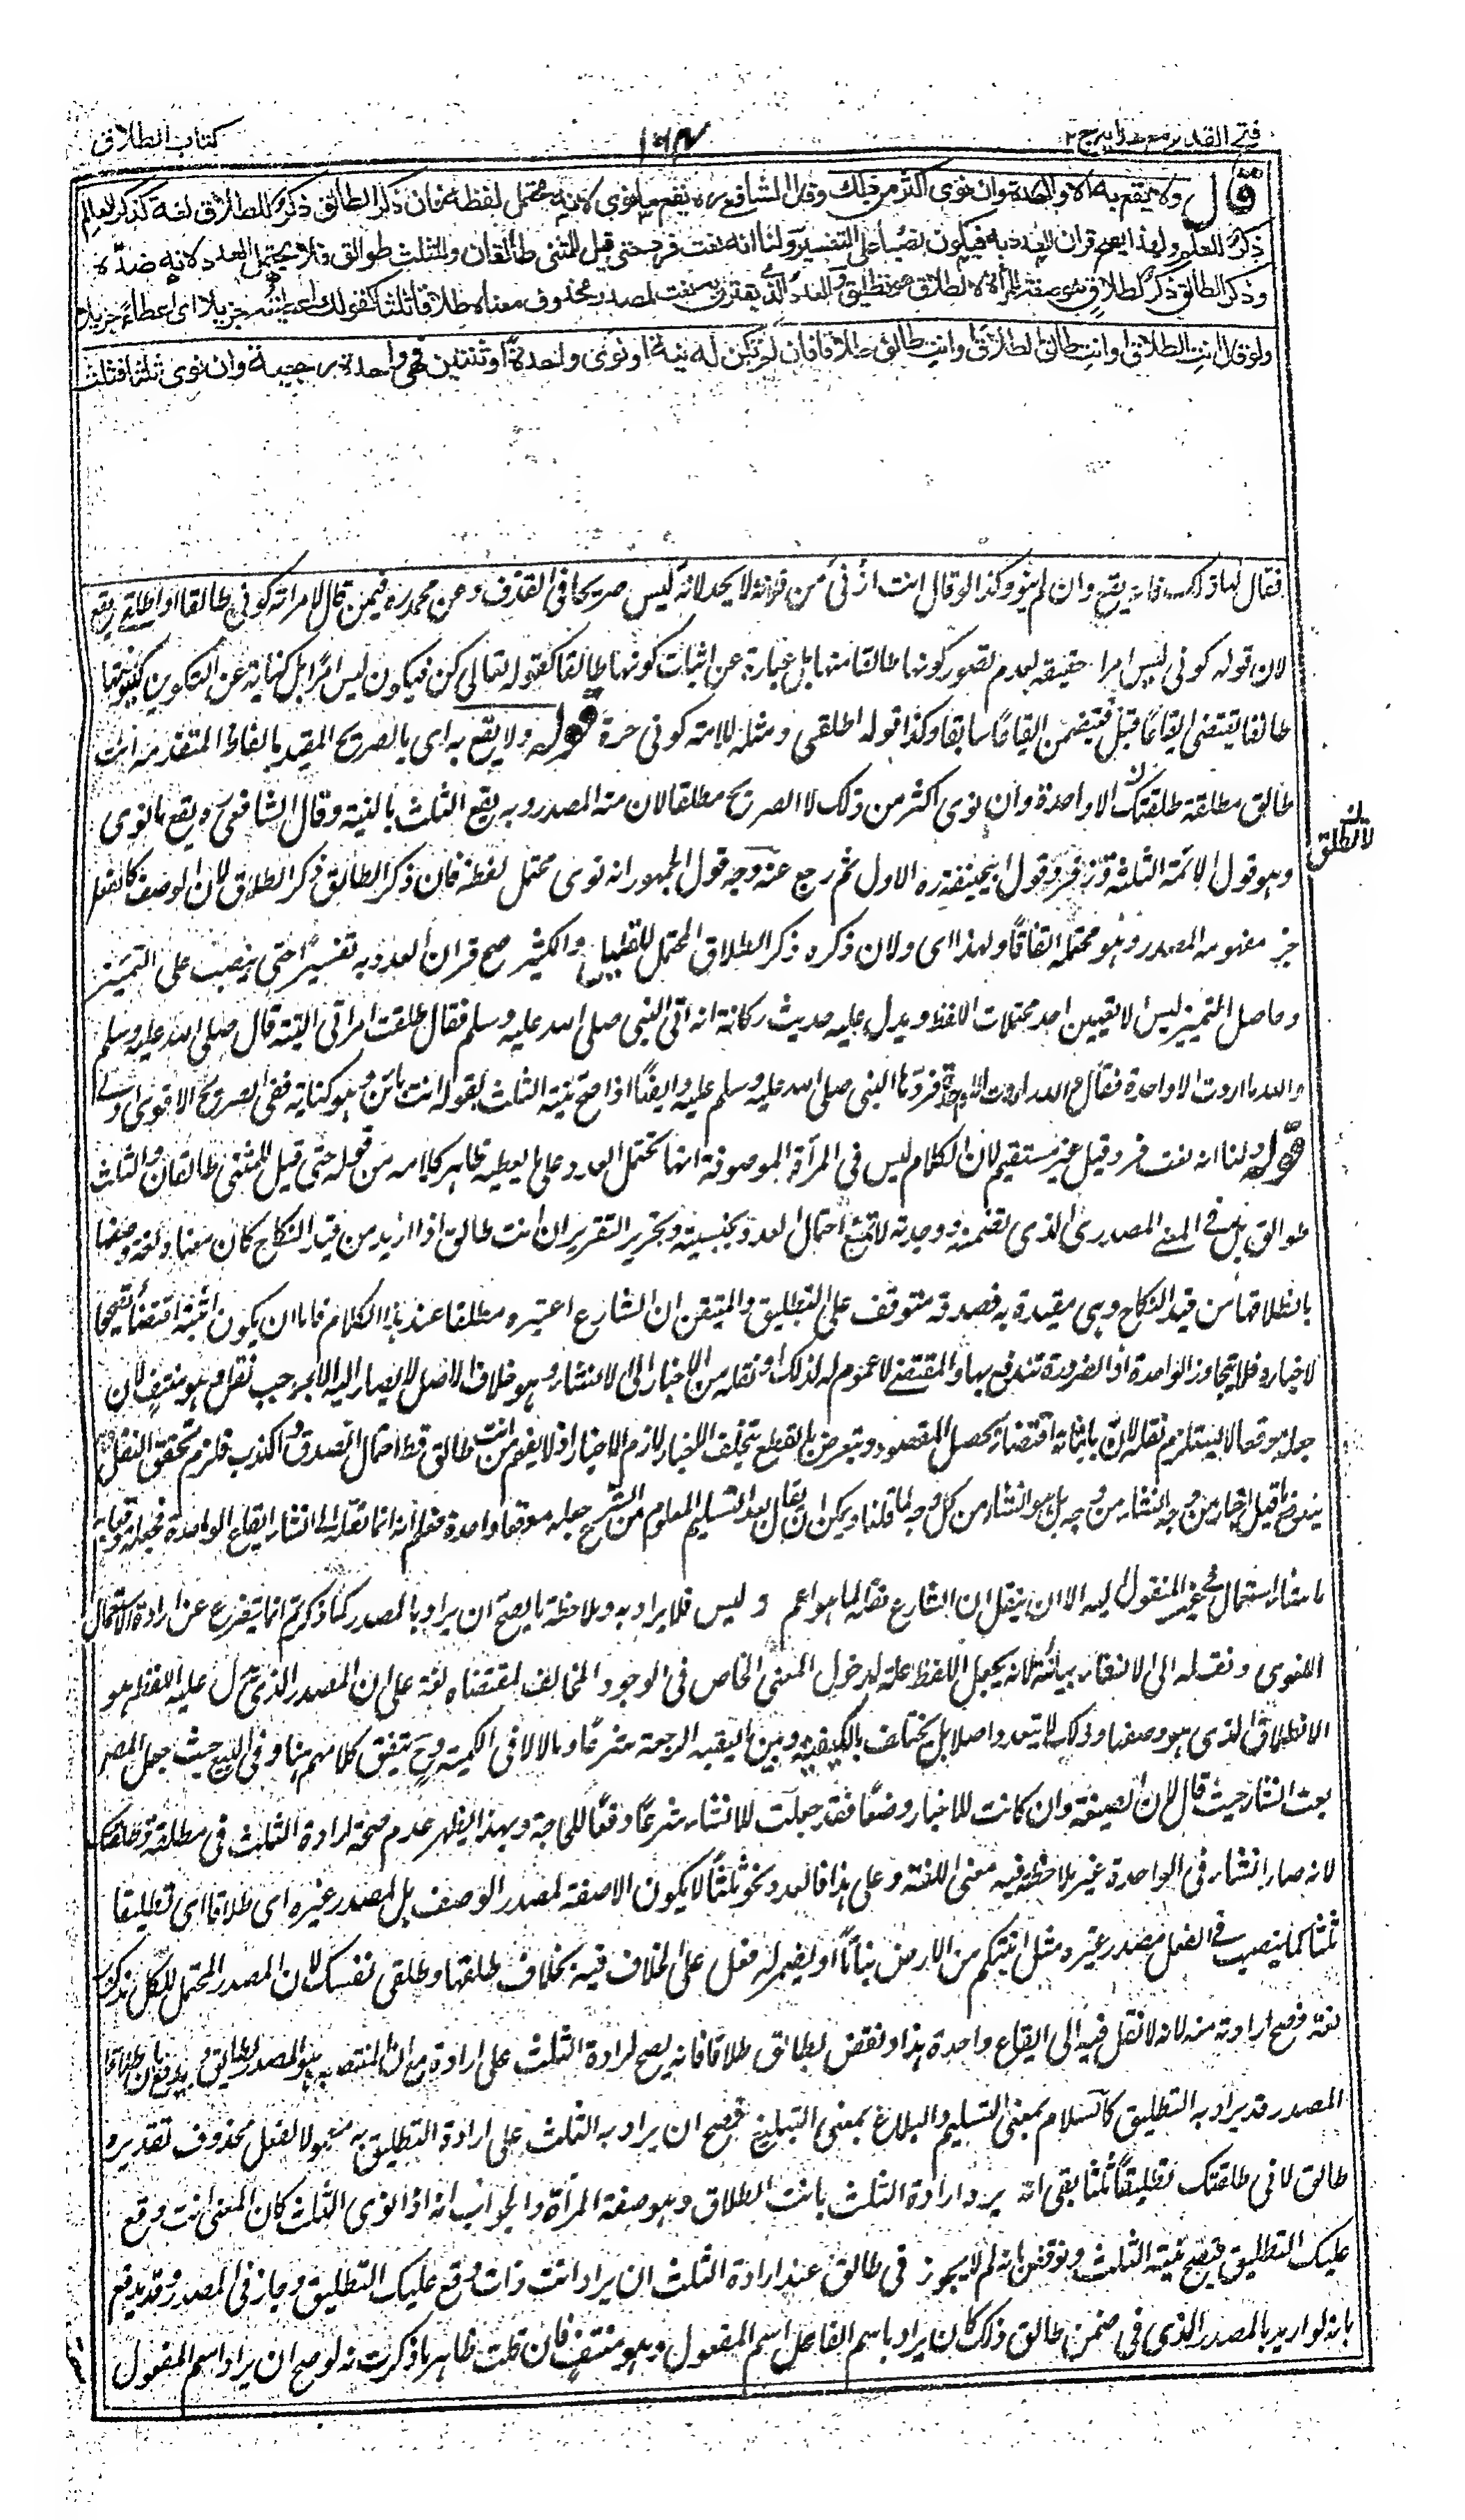 فتح القدير مع هدايه ج ٢
كتاب الطلاق
قال ولا يقع به الا واحدة وان نوى اكثر من ذلك وقال الشافعي ره يقع ما نوى لانه محتمل لفظه فان ذكر الطالق ذكر للطلاق لغة كذكر العالم
ذكر للعلم ولهذا يصح قران العدد به فيكون نصبا على التفسير ولنا انه نعت فرد حتى قيل للمثنى طالقان وللثلث طوالق فلا يحتمل العدد لانه ضده
وذكر الطالق ذكر لطلاق هو صفة للمرأة لا لطلاق هو تطليق والعدد الذي يقترن به نعت لمصدر محذوف معناه طلاقا ثلثا كقولك اعطيته جزيلا اى اعطاء جزيلا
ولو قال انت الطلاق او انت طالق الطلاق او انت طالق طلاقا فان لم تكن له نية او نوى واحدة او ثنتين فهى واحدة رجعية وان نوى ثلثا فثلث
فقال لها يقع وان لم ينو وكذا لو قال انت ازنى من فلانة لا يحد لانه ليس صريحا فى القذف وعن محمد ره فيمن قال لامراته كونى طالقا او اطلقى يقع
لان قوله كونى ليس امرا حقيقة لعدم تصور كونها طالقا منها بل عبارة عن اثبات كونها طالقا كقوله تعالى كن فيكون ليس امرا بل كناية عن التكوين كينونتها
طالقا يقتضى ايقاعا قبل فتيضمن ايقاعا سابقا وكذا قوله اطلقى ومثله للامة كونى حرة قوله ولا يقع به اى بالصريح المقيد بالفاظ المتقدمة انت
طالق مطلقة طلقتك الا واحدة وان نوى اكثر من ذلك لا الصريح مطلقا لان منه المصدر وبه يقع الثلث بالنية وقال الشافعي ره يقع ما نوى
لا تطلق
وهو قول الائمة الثلثة وزفر وقول ابيحنيفة ره الاول ثم رجع عنه وجه قول الجمهور انه نوى محتمل لفظه فان ذكر الطالق ذكر الطلاق لان الوصف كالفعل
جزء مفهومه المصدر وهو محتمله اتفاقا ولهذا اى ولان ذكره ذكر الطلاق المحتمل للقليل والكثير صح قران العدد به تفسيرا حتى ينصب على التمييز
وحاصل التمييز ليس الا تعيين احد محتملات اللفظ ويدل عليه حديث ركانة انه اتى النبى صلى الله عليه وسلم فقال طلقت امراتى البتة قال صلى الله عليه وسلم
والله ما اردت الا واحدة فقال والله ما اردت الا واحدة فردها النبى صلى الله عليه وسلم عليه وايضا اذا صح نية الثلث بقوله انت بائن وهو كناية ففى الصريح الاقوى اولى
قوله ولنا انه نعت فرد قيل غير مستقيم لان الكلام ليس فى المرأة الموصوفة انها تحتمل العدد على ما يعطيه ظاهر كلامه من قوله حتى قيل للمثنى طالقان وللثلث
طوالق بل فى المعنى المصدرى الذى تضمنه ووحدته لا تمنع احتمال العدد وبجنسيته وتحرير التقرير ان انت طالق اذا اريد من قيد النكاح كان معناه لغة وصفها
بانطلاقها من قيد النكاح وهى مقيدة به فصدقه متوقف على التطليق والمتيقن ان الشارع اعتبره مطلقا عند هذا الكلام فاما ان يكون اثبته اقتضاء تصحيحا
لاخباره فلا يتجاوز الواحدة اذ الضرورة تندفع بها والمقتضى لا عموم له لذلك او نقله من الاخبار الى الانشاء وهو خلاف الاصل لا يصار اليه الا بموجب نقل وهو منتف لان
جعله موقعا لا يستلزم نقله لان باثباته اقتضاء يحصل المقصود ويتعرض بالقطع بتخلف الاخبار لازم الاخبار اذ لا يفهم من انت طالق قط احتمال الصدق والكذب فلزم تحقق النقل
قيل اخبار من وجه انشاء من وجه بل هو انشاء من كل وجه لما قلنا ويمكن ان يقال بعد التسليم المعلوم من الشرع جعله موقعا واحدة فعلم انه انما نقله الى انشاء ايقاع الواحدة
استعمال فى غير المنقول اليه الا ان ينقل ان الشارع نقله لما هو اعم وليس فلا يراد به وملاحظة ما يصح ان يراد بالمصدر كما ذكرتم انما يتفرع عن ارادة الاستعمال
اللغوى ونقله الى الانشاء يباينه لانه يجعل اللفظ علة لدخول المعنى الخاص فى الوجود المخالف لمقتضاه لغة على ان المصدر الذى يدل عليه اللفظ هو
الانطلاق الذى هو وصفها وذلك لا يتعدد اصلا بل يختلف بالكيفية وبين الرجعة شرعا ومالا لا فى الكمية وح يتفق كلامهم هنا وفى البيع حيث جعل المص
بعت انشاء حيث قال لان الصيغة وان كانت للاخبار وضعا فقد جعلت للانشاء شرعا دفعا للحاجة وبهذا يظهر عدم صحة ارادة الثلث فى مطلقة وطلقتك
لانه صار انشاء فى الواحدة غير ملاحظ فيه معنى اللغة وعلى هذا فالعدد نحو ثلثا لا يكون الا صفة لمصدر الوصف بل لمصدر غيره اى طلاقا اى تطليقا
ثلثا كما ينصب فى الفعل مصدر غيره مثل انبتكم من الارض نباتا او يضمر له فعل على الخلاف فيه بخلاف طلقها وطلقى نفسك لان المصدر المحتمل للكل مذكور
لغة فصح ارادته منه لانه لا نقل فيه الى ايقاع واحدة هذا ونقض بطالق طلاقا فانه يصح ارادة الثلث على ارادته مع ان المنتصب هو المصدر لطالق ويدفع بان طلاقا
المصدر قد يراد به التطليق كالسلام بمعنى التسليم والبلاغ بمعنى التبليغ فصح ان يراد به الثلث على ارادة التطليق به معمولا لفعل محذوف تقديره
طالق لا فى طلقتك تطليقا ثلثا بقى انه يرد ارادة الثلث بانت الطلاق وهو صفة المرأة والجواب انه اذا نوى الثلث كان المعنى انت وقع
عليك التطليق فيصح نية الثلث ونوقض انه لم لا يجوز فى طالق عند ارادة الثلث ان يراد انت ذات وقع عليك التطليق وجاز فى المصدر وقد يدفع
بانه لو اريد بالمصدر الذى فى ضمن طالق ذلك كان يراد باسم الفاعل اسم المفعول وهو منتف فان قلت ظاهر ما ذكرت انه لو صح ان يراد اسم المفعول